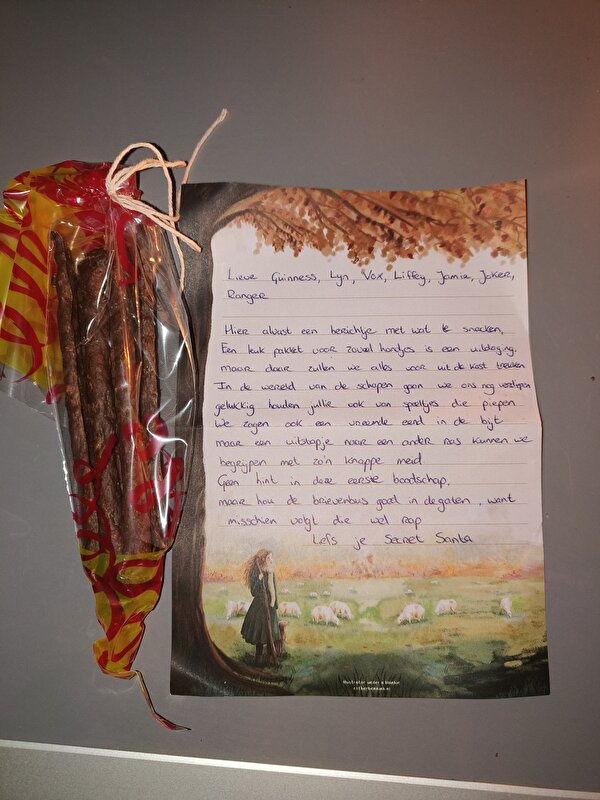 Lieve Guinness, Lyn, Vox, Liffey, Jamie, Joker,
Ranger
Hier alvast een berichtje met wat te snacken,
Een leuk pakket voor zoveel hondjes is een uitdaging,
maar daar zullen we alles voor uit de kast trekken
In de wereld van de schapen gaan we ons nog verdiepen
gelukkig houden jullie ook van speeltjes die piepen
We zagen ook een vreemde eend in de bijt
maar een uitstapje naar een ander ras kunnen we
begrijpen met zo'n knappe meid
Geen hint in deze eerste boodschap,
maar hou de brievenbus goed in de gaten, want
misschien volgt die wel rap
Liefs je Secret Santa